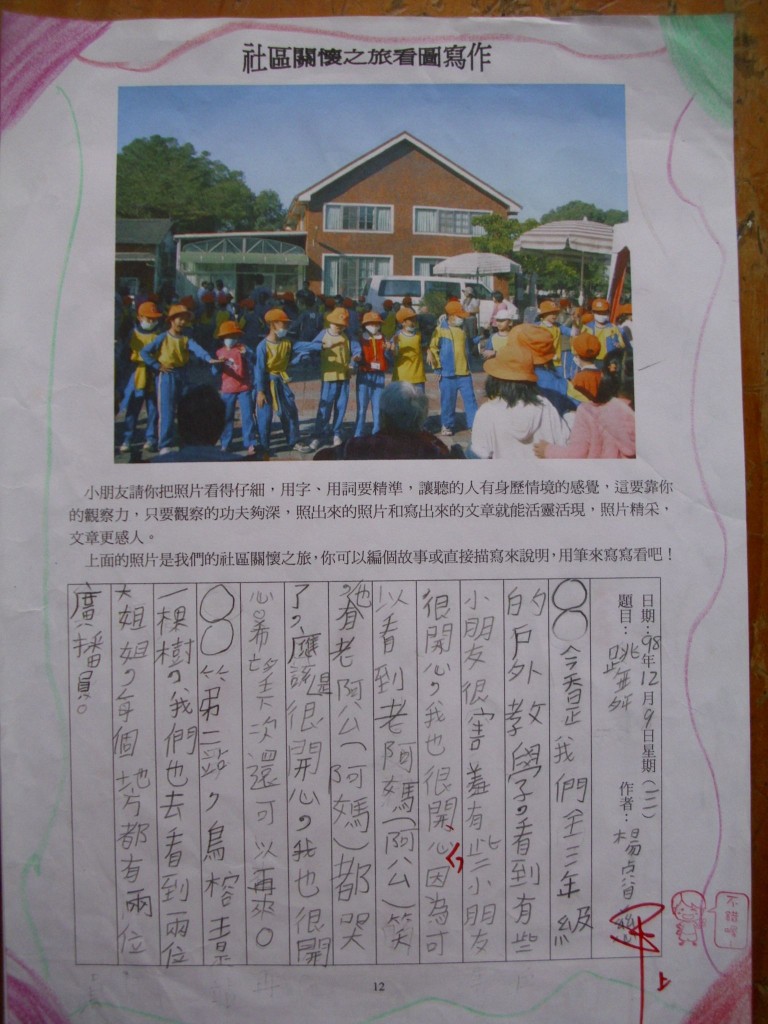 社區關懷之旅看圖寫作
小朋友請你把照片看得仔細，用字、用詞要精準，讓聽的人有身歷情境的感覺，這要靠你
的觀察力，只要觀察的功夫夠深，照出來的照片和寫出來的文章就能活靈活現，照片精采，
文章更感人。
上面的照片是我們的社區關懷之旅，你可以編個故事或直接描寫來說明，用筆來寫寫看吧！
日期：98年12月9日星期（三）
題目：跳舞 作者：楊
○○今香是我們全三年級
的戶外教學，看到有些
小朋友很害羞有些小朋友
很開心，我也很開心因為可
以看到老阿媽（阿公）笑
，老阿公（阿媽）都哭
了，應該是很開心，我也很開
心。希望下次還可以再來。
○○第二站，鳥榕
一棵樹，我們也去看到兩位
大姐姐，每個地方都有兩位
廣播員。
不錯哦
上
12